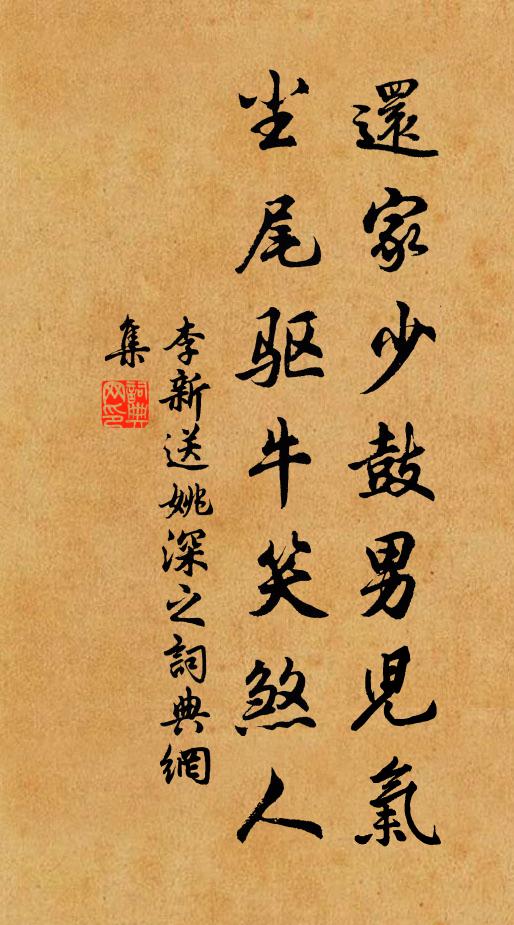 還家少鼓男児氣
坐尾驱牛笑煞人
李新送姚深之詞典網
集
詞典
网印